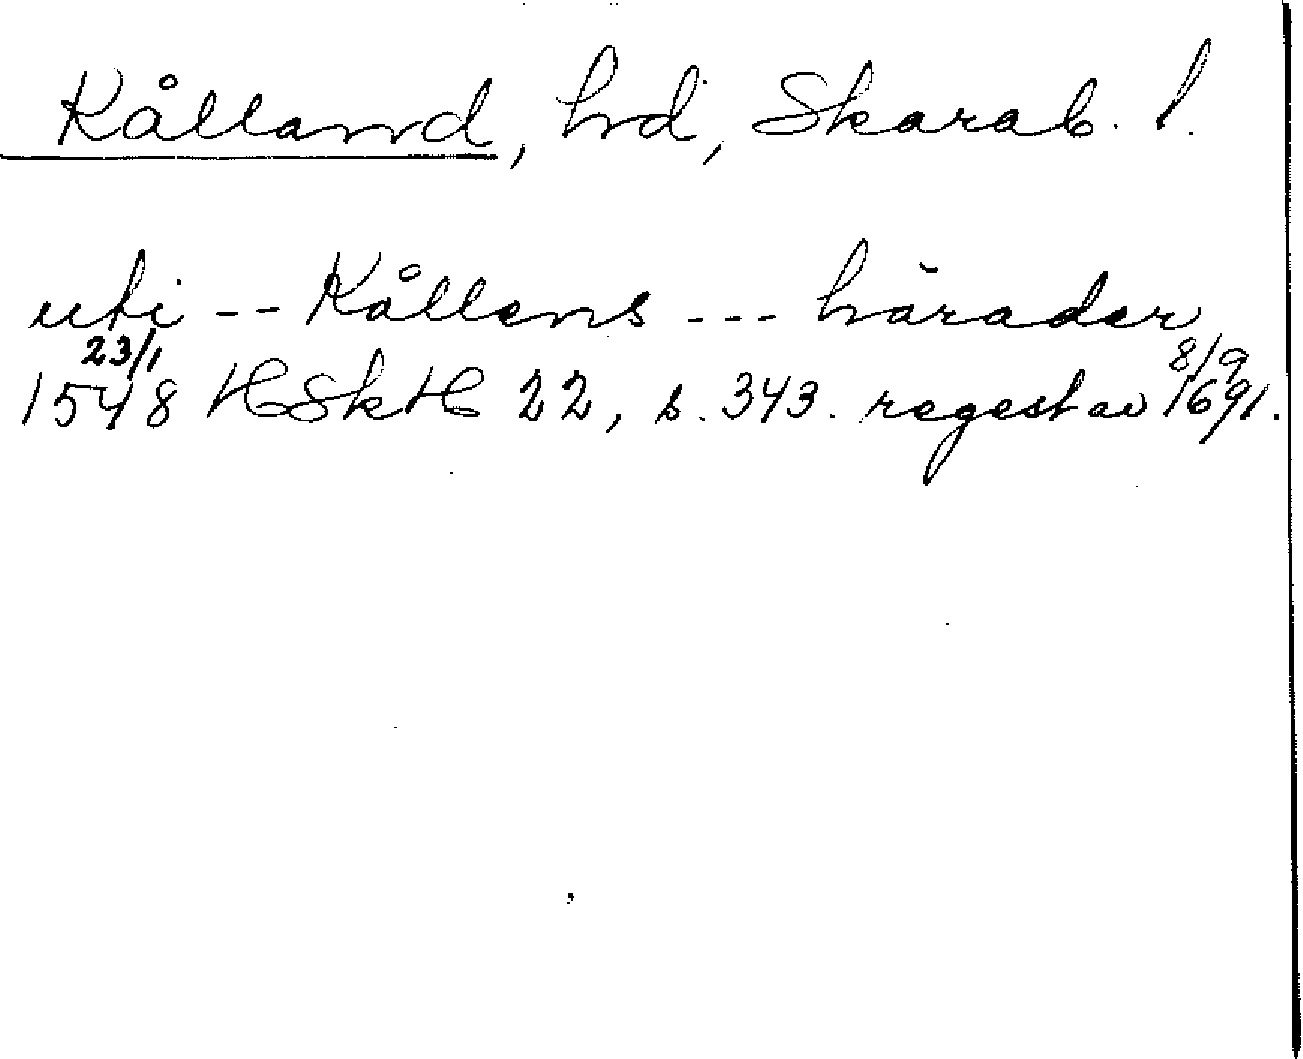 Kålland, hd, Skarab. l.
uti -- Kållens --- härader
23/1 8/9
1548 HSkH 22, s. 343. regest av 1691.